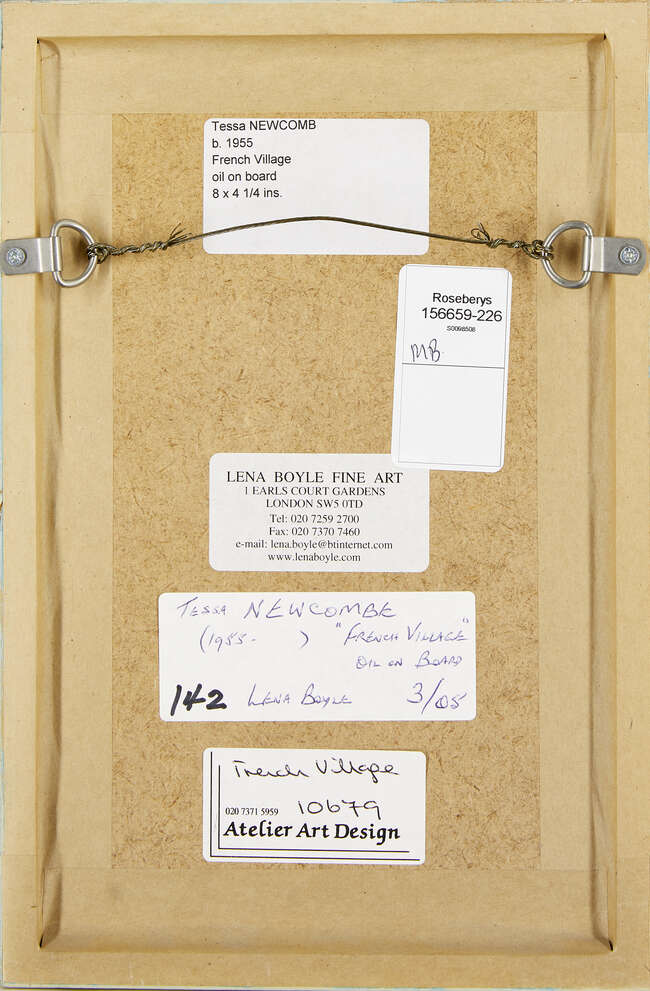 Tessa NEWCOMB
b. 1955
French Village
oil on board
8 x 4 1/4 ins.
Roseberys
156659-226
S0098508
MB
LENA BOYLE FINE ART
1 EARLS COURT GARDENS
LONDON SW5 0TD
Tel: 020 7259 2700
Fax: 020 7370 7460
e-mail: lena.boyle@btinternet.com
www.lenaboyle.com
TESSA NEWCOMBE
(1955- ) "FRENCH VILLAGE"
OIL ON BOARD
142 LENA BOYLE 3/05
French Village
020 7371 5959 10679
Atelier Art Design